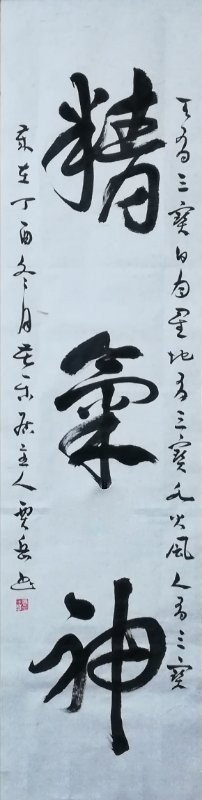 天有三寶日月星地有三寶水火風人有三寶
精氣神
歲在丁酉冬月居主人賈岳書